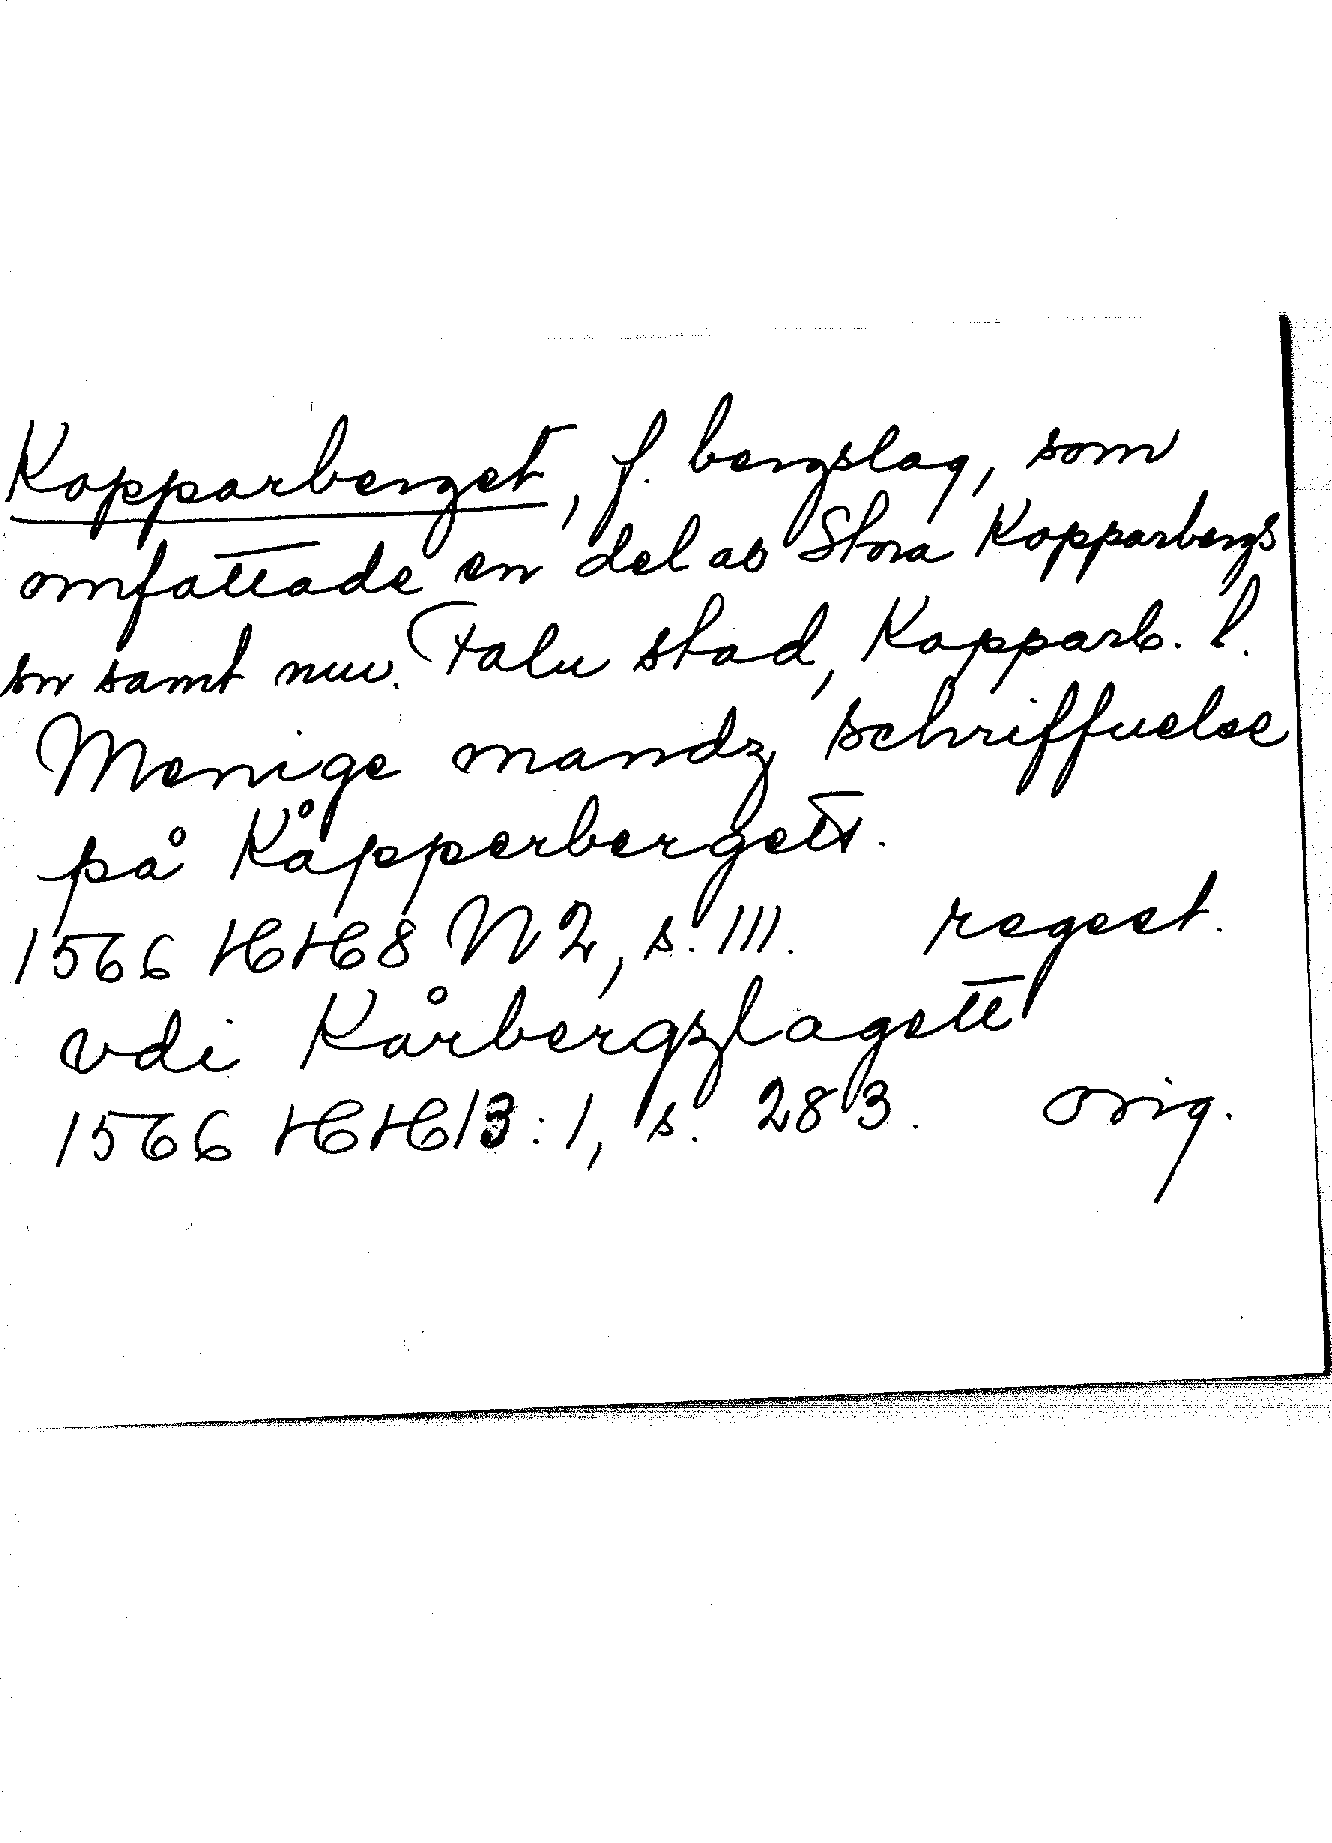 Kopparberget, f. bergslag, som
omfattade en del av Stora Kopparbergs
sn samt nuv. Falu stad, Kopparb. l.
Menige mandz schriffuelse
på Kåpperbergett.
1566 HH8 N 2, s. 111. regest.
vdi Kårbergzlagett
1566 HH13:1, s. 283. orig.